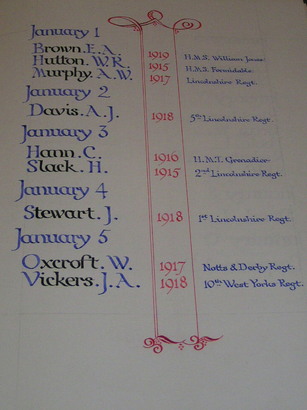 January 1
Brown. E. A. 1919 H.M.S. William Jones
Hutton. W. R. 1915 H.M.S. Formidable
Murphy. A. W. 1917 Lincolnshire Regt.
January 2
Davis. A. J. 1918 5th Lincolnshire Regt.
January 3
Hann. C. 1916 H.M.T. Grenadier
Slack. H. 1915 2nd Lincolnshire Regt.
January 4
Stewart. J. 1918 1st Lincolnshire Regt.
January 5
Oxcroft. W. 1917 Notts & Derby Regt.
Vickers. J. A. 1918 10th West Yorks Regt.